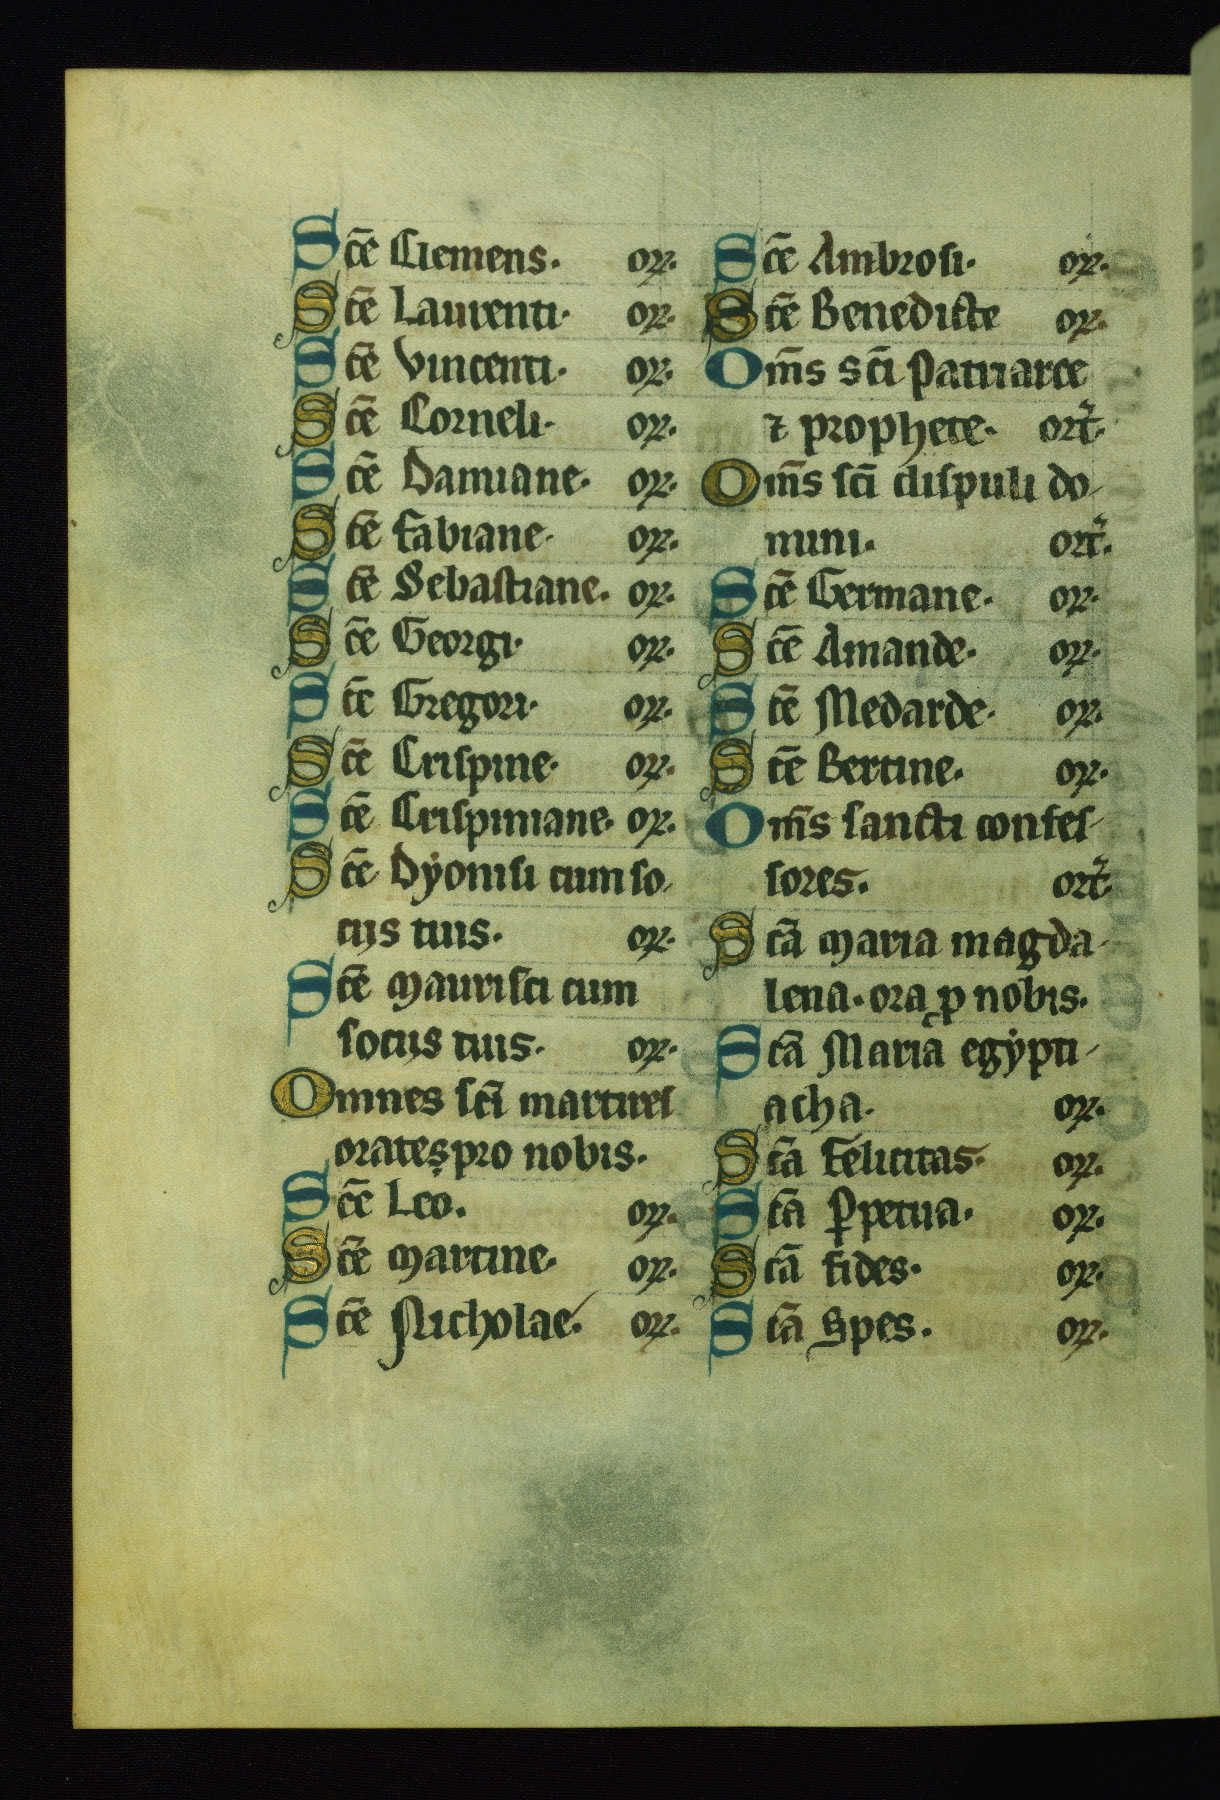 Sc̄e Clemens· or̲.
Sc̄e Laurenti· or̲.
Sc̄e Vincenti· or̲.
Sc̄e Corneli· or̲.
Sc̄e Damiane· or̲.
Sc̄e fabiane· or̲.
Sc̄e Sebastiane· or̲.
Sc̄e Georgi· or̲.
Sc̄e Gregori· or̲.
Sc̄e Crispine· or̲.
Sc̄e Crispiniane· or̲.
Sc̄e Dẏonisi cum so
cijs tuis· or̲.
Sc̄e maurisci cum
socijs tuis· or̲.
Omnes sc̄i martires
orates pro nobis·
Sc̄e Leo. or̲.
Sc̄e martine· or̲.
Sc̄e Nicholae· or̲.
Sc̄e Ambrosi· or̲.
Sc̄e Benedicte or̲.
Om̄s sc̄i Patriarce
⁊ prophete· ort̄.
Om̄s sc̄i discipuli do
mini. ort̄.
Sc̄e Germane· or̲.
Sc̄e Amande· or̲.
Sc̄e Medarde· or̲.
Sc̄e Bertine· or̲.
Om̄s sancti confes
sores. ort̄.
Sc̄a maria magda
lena· ora p nobis·
Sc̄a Maria egẏpti
acha· or̲.
Sc̄a felicitas· or̲.
Sc̄a Ꝑpetua· or̲.
Sc̄a fides· or̲.
Sc̄a Spes. or̲.